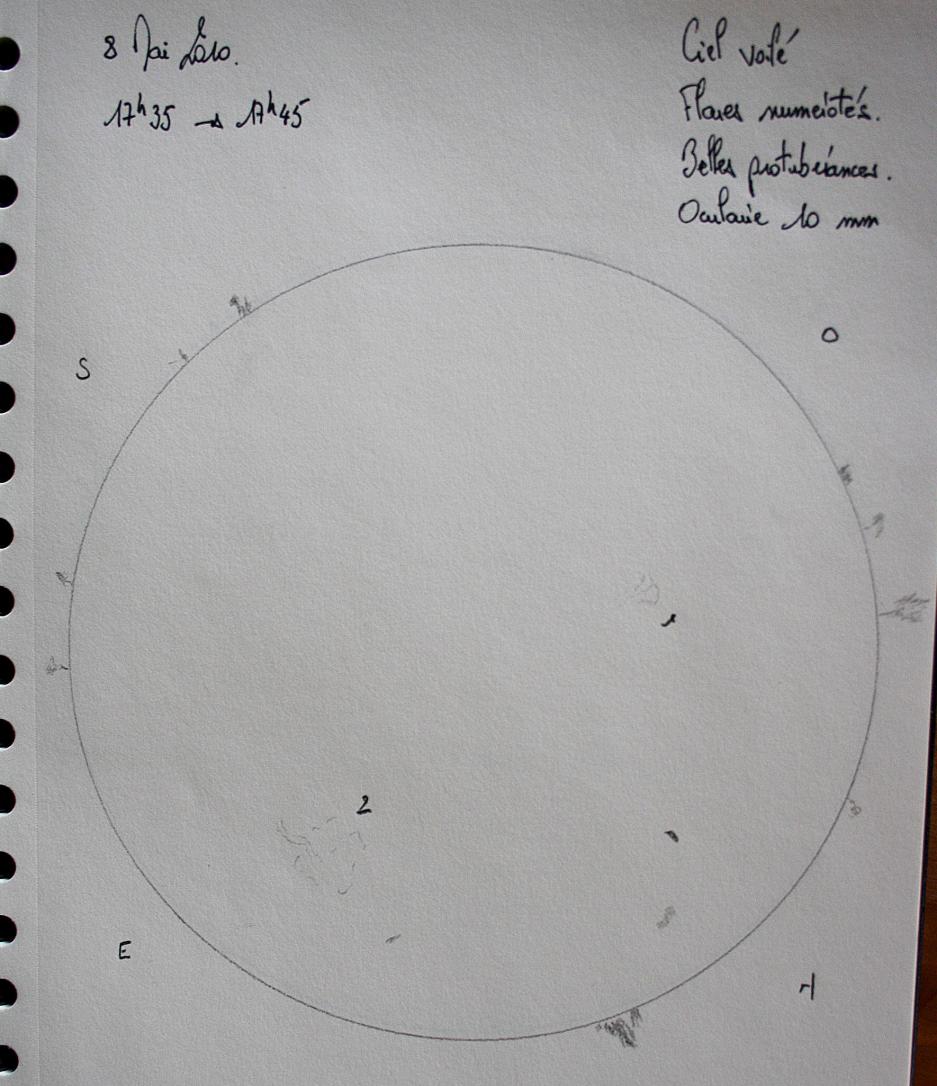 8 Mai 2010.
17h35 → 17h45
Ciel voilé
Flares numérotés.
Belles protubérances.
Oculaire 10 mm
S
O
1
2
E
N